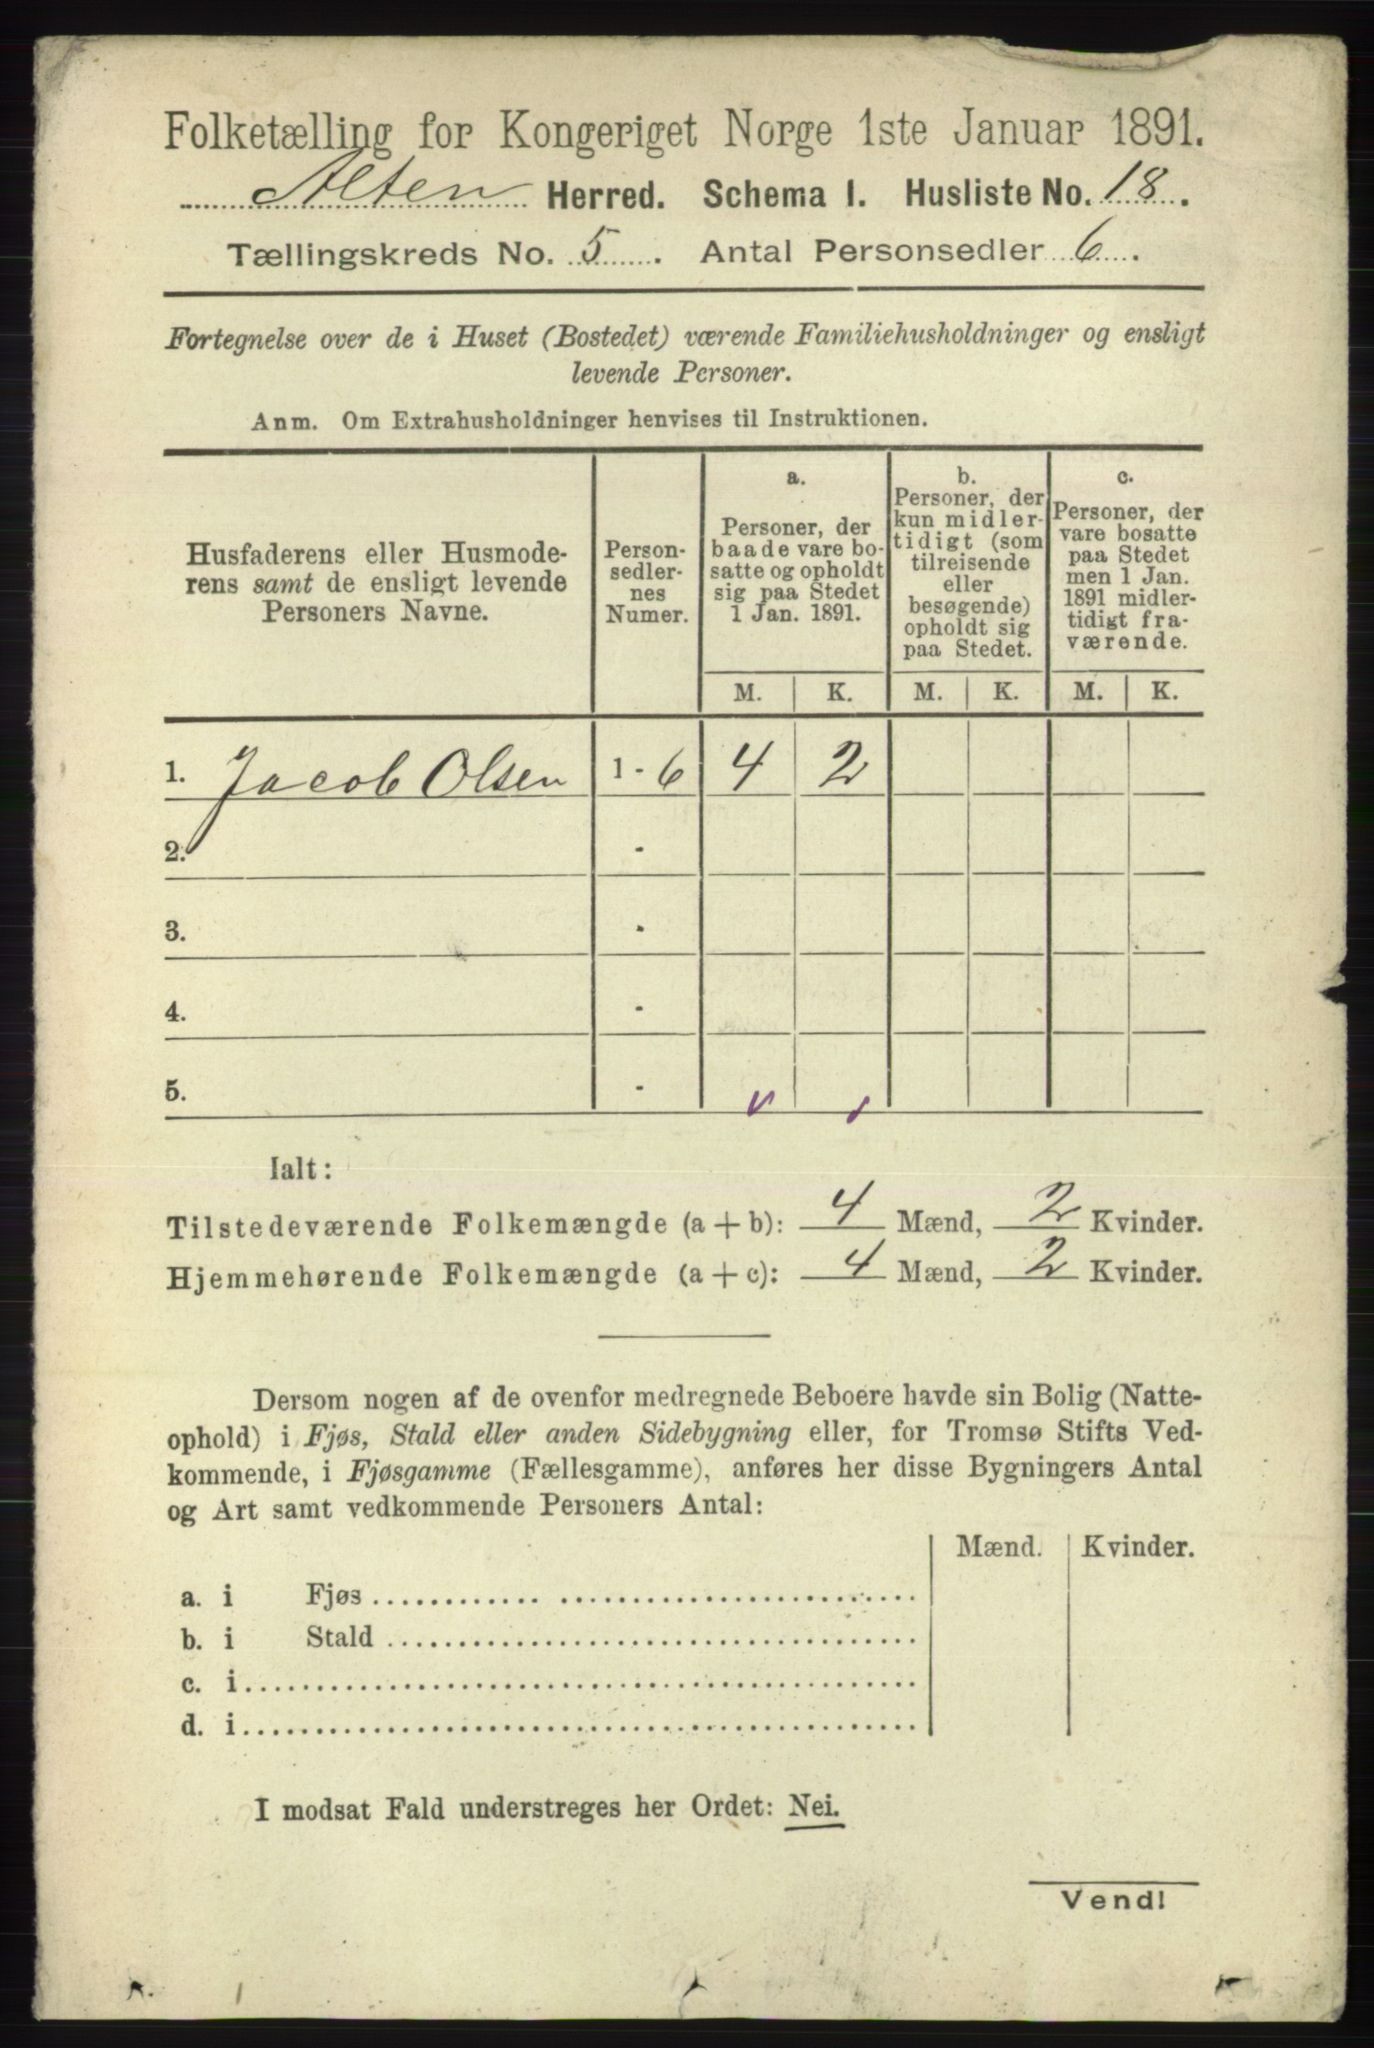 Folketælling for Kongeriget Norge 1ste Januar 1891.
Alten Herred. Schema I. Husliste No. 18.
Tællingskreds No. 5. Antal Personsedler 6.
Fortegnelse over de i Huset (Bostedet) værende Familiehusholdninger og ensligt
levende Personer.
Anm. Om Extrahusholdninger henvises til Instruktionen.
Husfaderens eller Husmode-
rens samt de ensligt levende
Personers Navne.
Person-
sedler-
nes
Numer.
a.
Personer, der
baade vare bo-
satte og opholdt
sig paa Stedet
1 Jan. 1891.
b.
Personer, der
kun midler-
tidigt (som
tilreisende
eller
besøgende)
opholdt sig
paa Stedet.
c.
Personer, der
vare bosatte
paa Stedet
men 1 Jan.
1891 midler-
tidigt fra-
værende.
M. K. M. K. M. K.
1. Jacob Olsen 1 - 6 4 2
2. -
3. -
4. -
5. -
Ialt:
Tilstedeværende Folkemængde (a + b): 4 Mænd, 2 Kvinder.
Hjemmehørende Folkemængde (a + c): 4 Mænd, 2 Kvinder.
Dersom nogen af de ovenfor medregnede Beboere havde sin Bolig (Natte-
ophold) i Fjøs, Stald eller anden Sidebygning eller, for Tromsø Stifts Ved-
kommende, i Fjøsgamme (Fællesgamme), anføres her disse Bygningers Antal
og Art samt vedkommende Personers Antal:
Mænd. Kvinder.
a. i Fjøs
b. i Stald
c. i
d. i
I modsat Fald understreges her Ordet: Nei.
Vend!